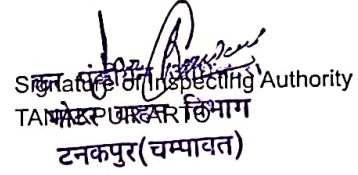 Signature of Inspecting Authority
TANAKPUR ARTO
मोटर वाहन विभाग
टनकपुर (चम्पावत)